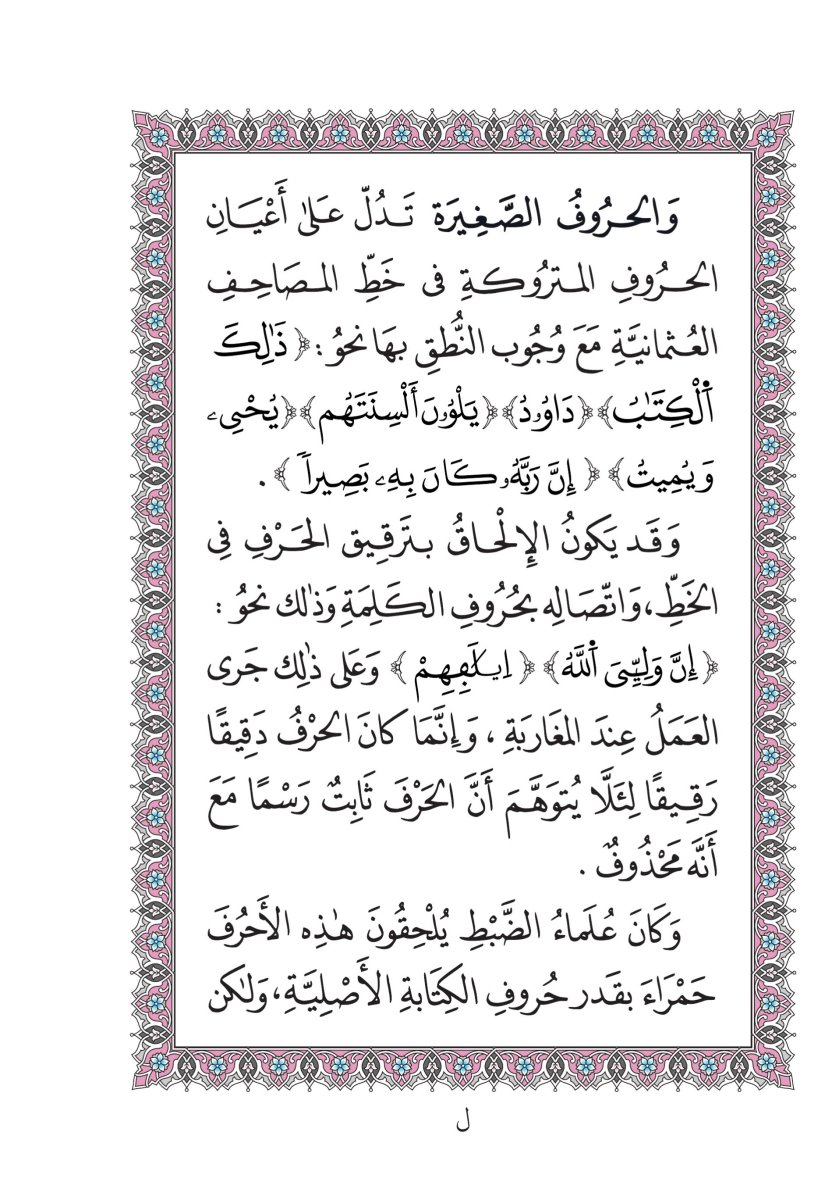 وَالحرُوفُ الصَّغِيرَة تَدُلّ عَلىٰ أَعْيَانِ
الحرُوفِ المتْرُوكةِ فى خَطِّ المصَاحِفِ
العُثمانيَّةِ مَعَ وُجُوب النُّطقِ بهَا نحوُ : ﴿ ذَٰلِكَ
ٱلْكِتَٰبُ﴾ ﴿دَاوُۥدُ﴾ ﴿يَلْوُۥنَ أَلْسِنَتَهُم﴾ ﴿يُحْيِۦ
وَيُمِيتُ﴾ ﴿ إِنَّ رَبَّهُۥ كَانَ بِهِۦ بَصِيراً ﴾ .
وَقَد يَكونُ الإِلْحاقُ بتَرقِيق الحَرْفِ فِي
الخَطِّ، وَاتّصَالِه بحُرُوفِ الكَلِمَةِ وَذٰلك نحوُ :
﴿ إِنَّ وَلِـِّۧيَ ٱللَّهُ ﴾ ﴿ اِۦلَٰفِهِمْ ﴾ وَعَلى ذٰلِك جَرى
العَمَلُ عِندَ المغَاربَةِ ، وَإِنَّمَا كانَ الحَرْفُ دَقِيقًا
رَقِيقًا لِئَلَّا يُتوَهَّمَ أَنَّ الحَرْفَ ثَابتٌ رَسْمًا مَعَ
أَنَّه مَحْذُوفٌ .
وَكَانَ عُلَماءُ الضَّبْطِ يُلْحِقُونَ هٰذِه الأَحرُفَ
حَمْرَاءَ بقَدر حُروفِ الكِتَابةِ الأَصْلِيَّةِ، وَلٰكن
ل